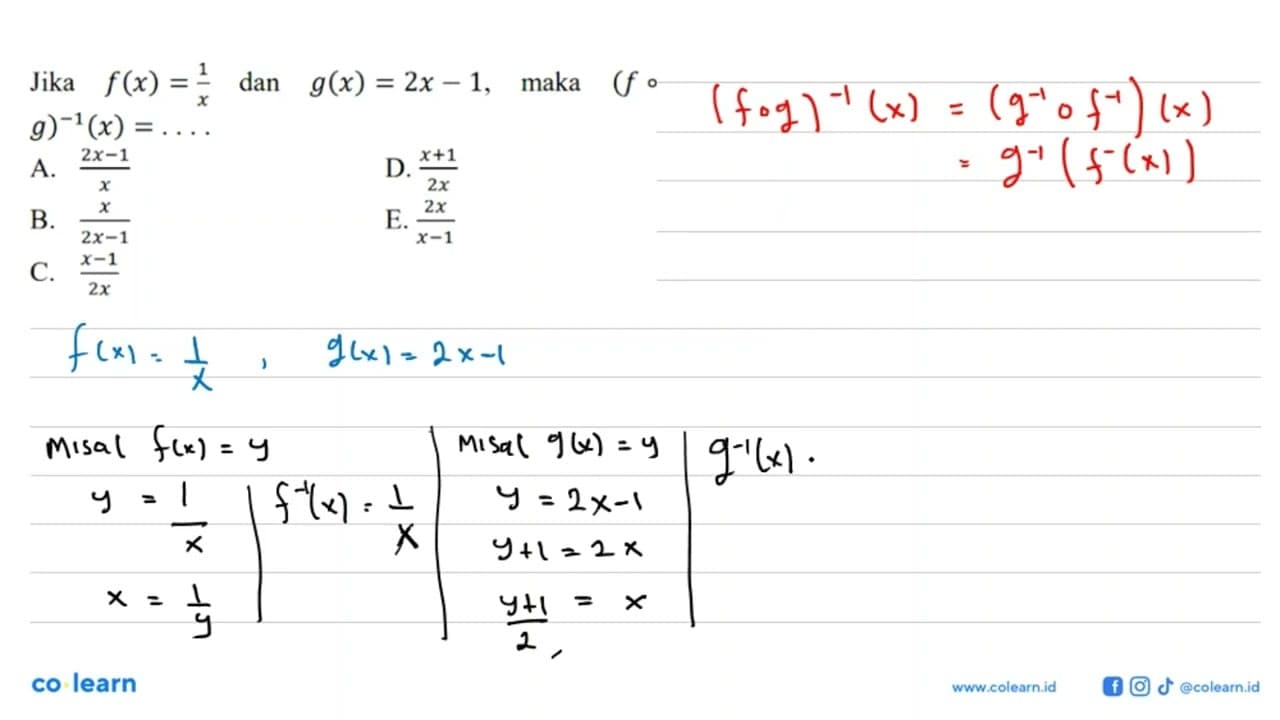 Jika f(x) = 1/x dan g(x) = 2x − 1, maka (f ∘
g)⁻¹(x) = ....
A. (2x−1)/x
B. x/(2x−1)
C. (x−1)/2x
D. (x+1)/2x
E. 2x/(x−1)
(fog)⁻¹(x) = (g⁻¹ o f⁻¹)(x)
= g⁻¹(f⁻(x))
f(x) = 1/x , g(x) = 2x−1
Misal f(x) = y
y = 1/x
x = 1/y
f⁻¹(x) = 1/x
Misal g(x) = y
y = 2x−1
y+1 = 2x
(y+1)/2 = x
g⁻¹(x) .
co·learn
www.colearn.id
@colearn.id